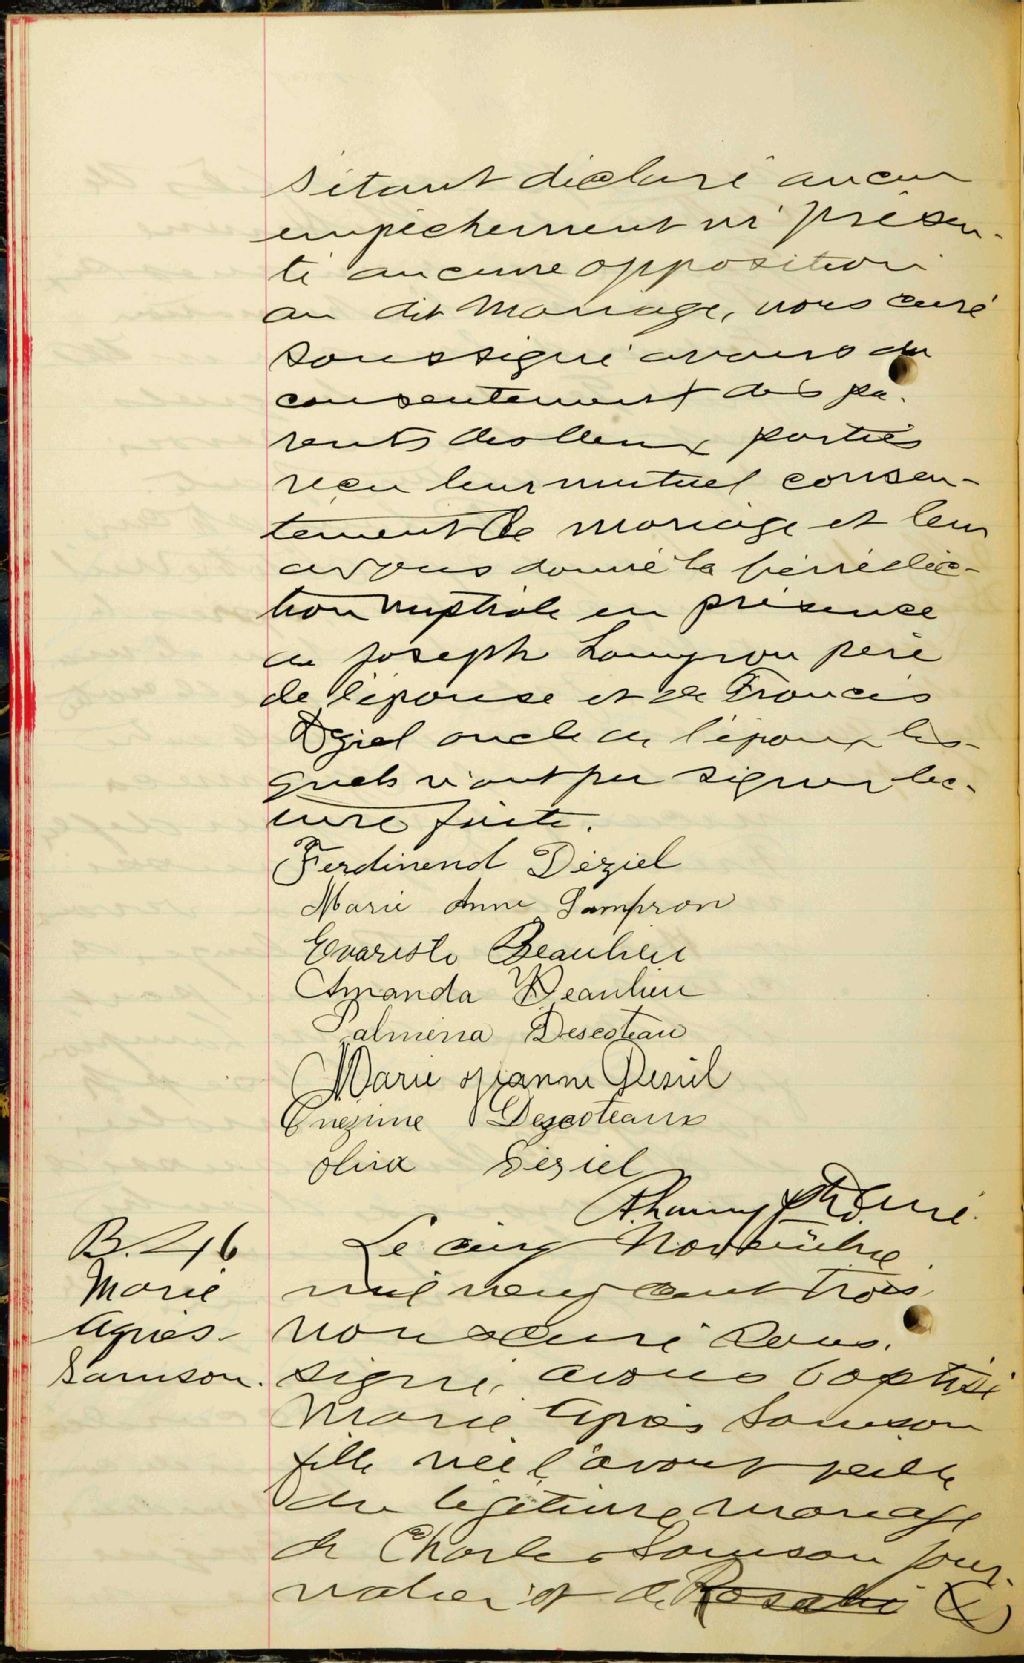 s'étant déclaré aucun
empêchement ni présen-
té aucune opposition
au dit Mariage, nous curé
soussigné avons du
consentement des pa-
rents des deux parties
reçu leur mutuel consen-
tement de mariage et leur
avons donné la bénédic-
tion nuptiale en présence
de Joseph Lampron père
de l'épouse et de Francis
Déziel oncle de l'époux les-
quels n'ont pu signer lec-
ture faite.
Ferdinend Déziel
Marie Anne Lampron
Evariste Beaulieu
Amanda Beaulieu
Palmina Descoteau
Marie Deziel
Onezime Descoteaux
Oliva Déziel
Ptre Curé.
B. 46
Marie
Agnès
Samson.
Le cinq Novembre
mil neuf cent trois
nous curé sous-
signé, avons baptisé
Marie Agnès Samson
fille née l'avant veille
du légitime mariage
de Charles Samson jour-
nalier et de Rosalie